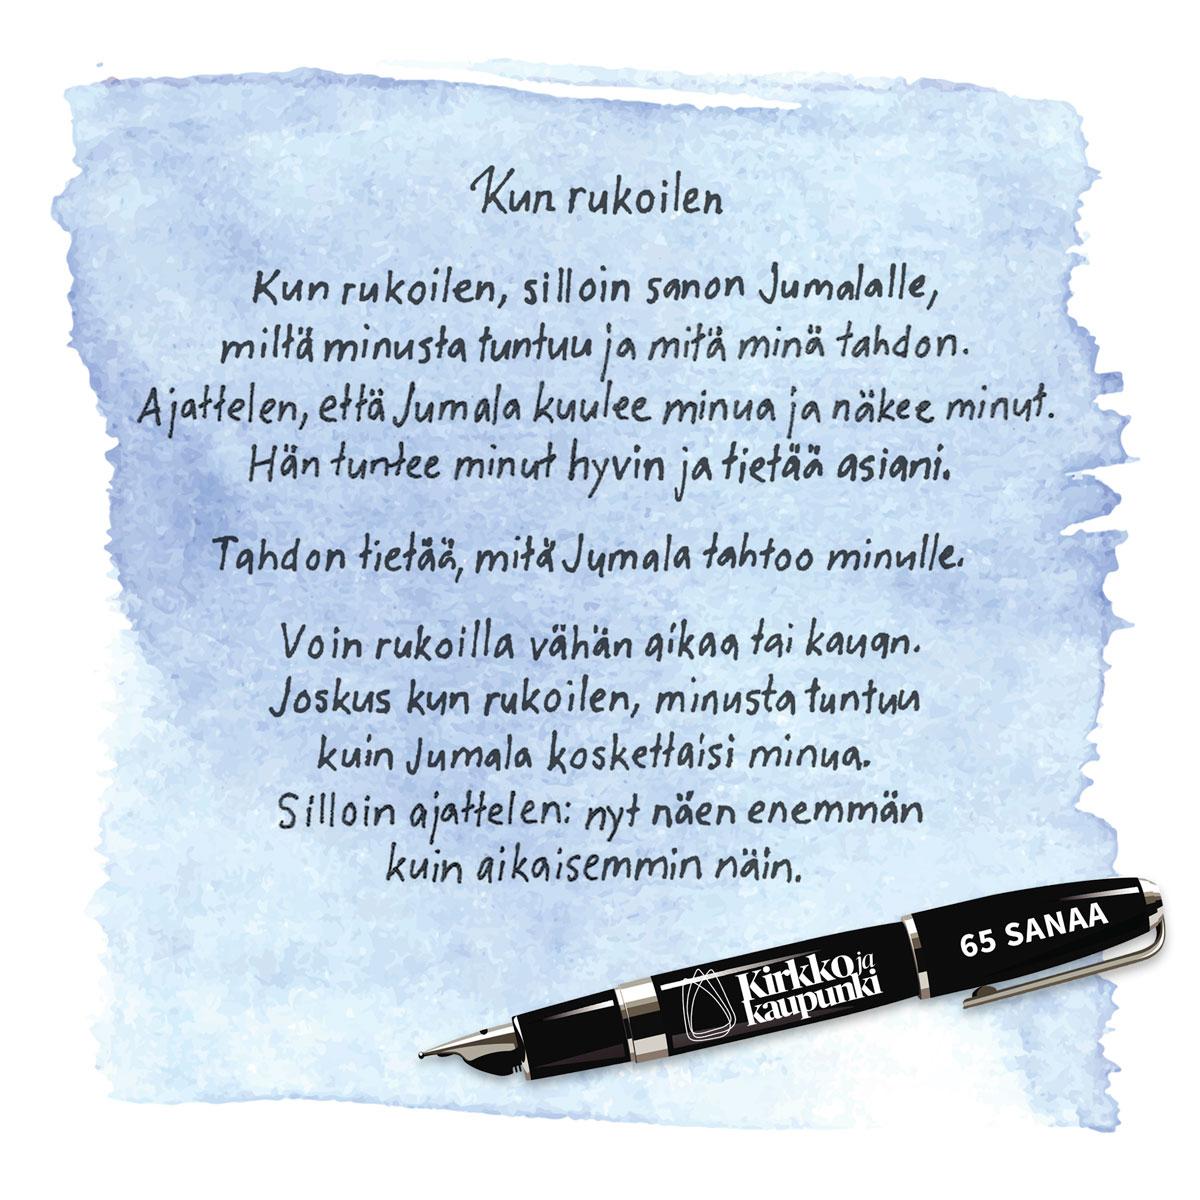 Kun rukoilen
Kun rukoilen, silloin sanon Jumalalle,
miltä minusta tuntuu ja mitä minä tahdon.
Ajattelen, että Jumala kuulee minua ja näkee minut.
Hän tuntee minut hyvin ja tietää asiani.
Tahdon tietää, mitä Jumala tahtoo minulle.
Voin rukoilla vähän aikaa tai kauan.
Joskus kun rukoilen, minusta tuntuu
kuin Jumala koskettaisi minua.
Silloin ajattelen: nyt näen enemmän
kuin aikaisemmin näin.
65 SANAA
Kirkko ja
kaupunki